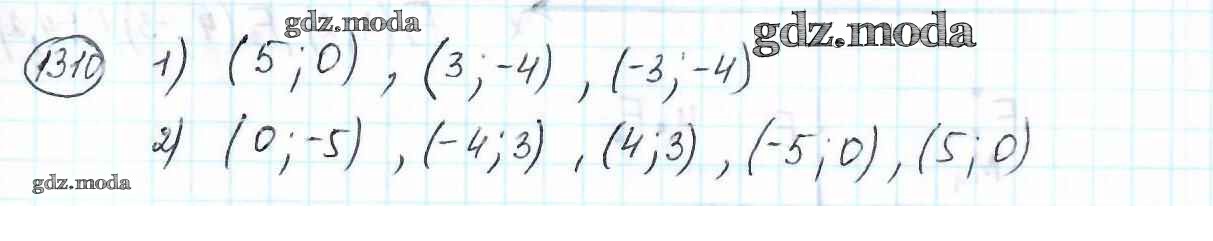 gdz.moda
gdz.moda
1310 1) (5; 0), (3; -4), (-3; -4)
2) (0; -5), (-4; 3), (4; 3), (-5; 0), (5; 0)
gdz.moda